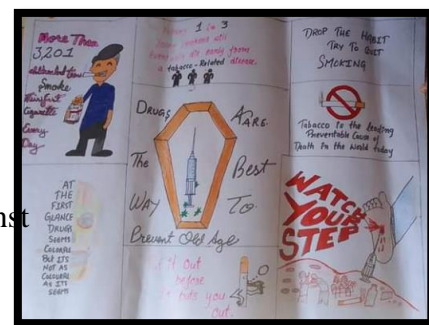 More Than
3,201
Smoke
First
Cigarette
Every
Day
1 in 3
from
a tobacco-Related disease.
DROP THE HABIT
TRY TO QUIT
SMOKING
Tobacco Is the leading
Preventable Cause of
Death In the World today
DRUGS ARE
The Best
WAY TO
Prevent Old Age
AT
THE
FIRST
GLANCE
DRUGS
SEEMS
COLOURFUL
BUT ITS
NOT AS
COLOURFUL
AS IT
SEEMS
WATCH
YOUR
STEP
it Out
before
it puts you
Out.
nst